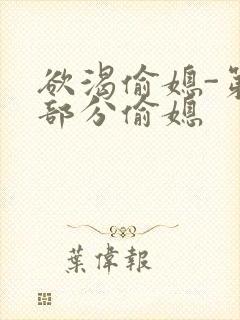 欲渴偷媳-第
部分偷媳
葉偉報